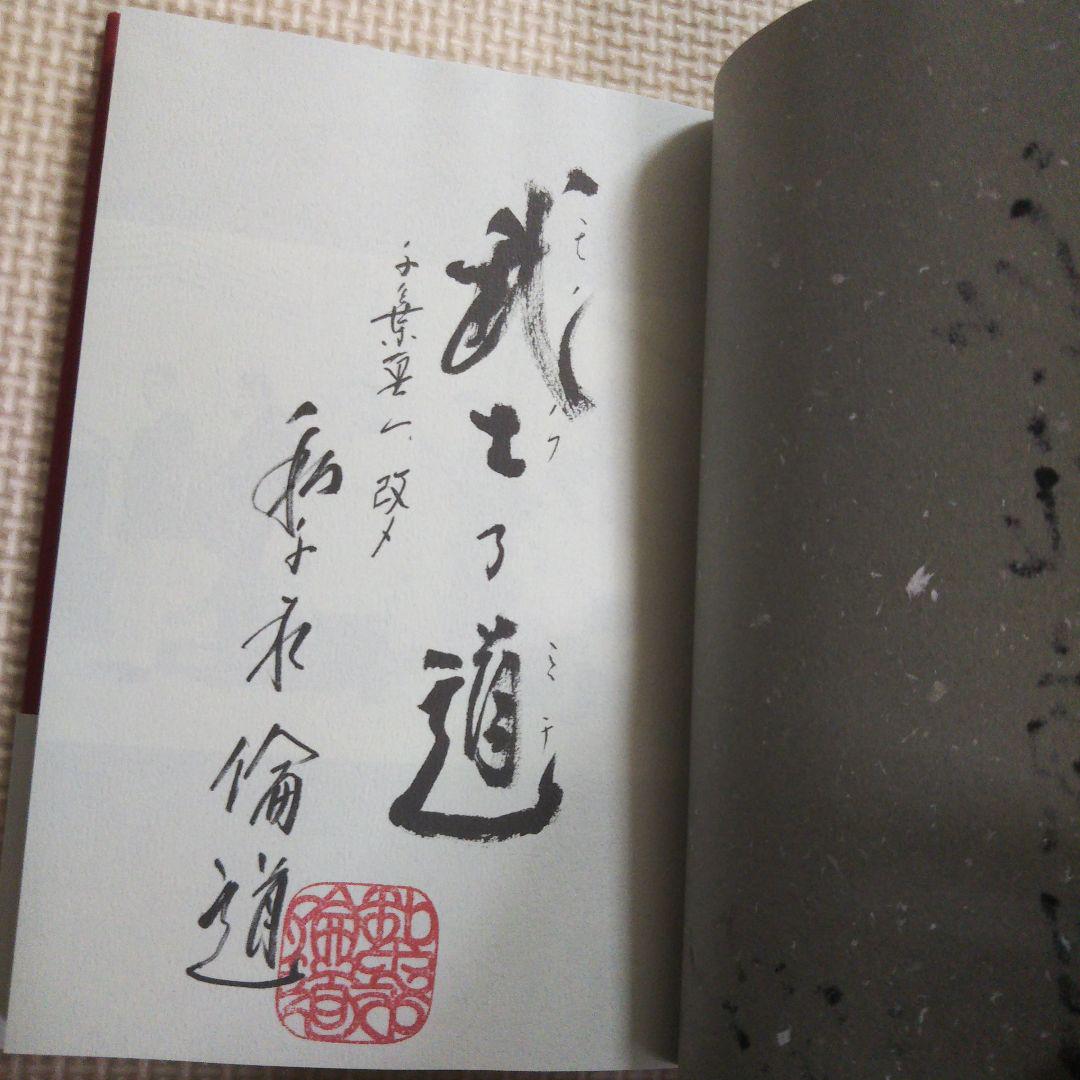 武士乃道
モノノフ
ミチ
千葉真一改メ
和千永倫道